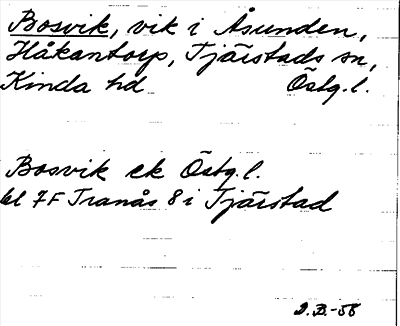 Bosvik, vik i Åsunden,
Håkantorp, Tjärstads sn,
Kinda hd Östg.l.
Bosvik ek Östg.l.
bl 7F Tranås 8 i Tjärstad
D.B.-58